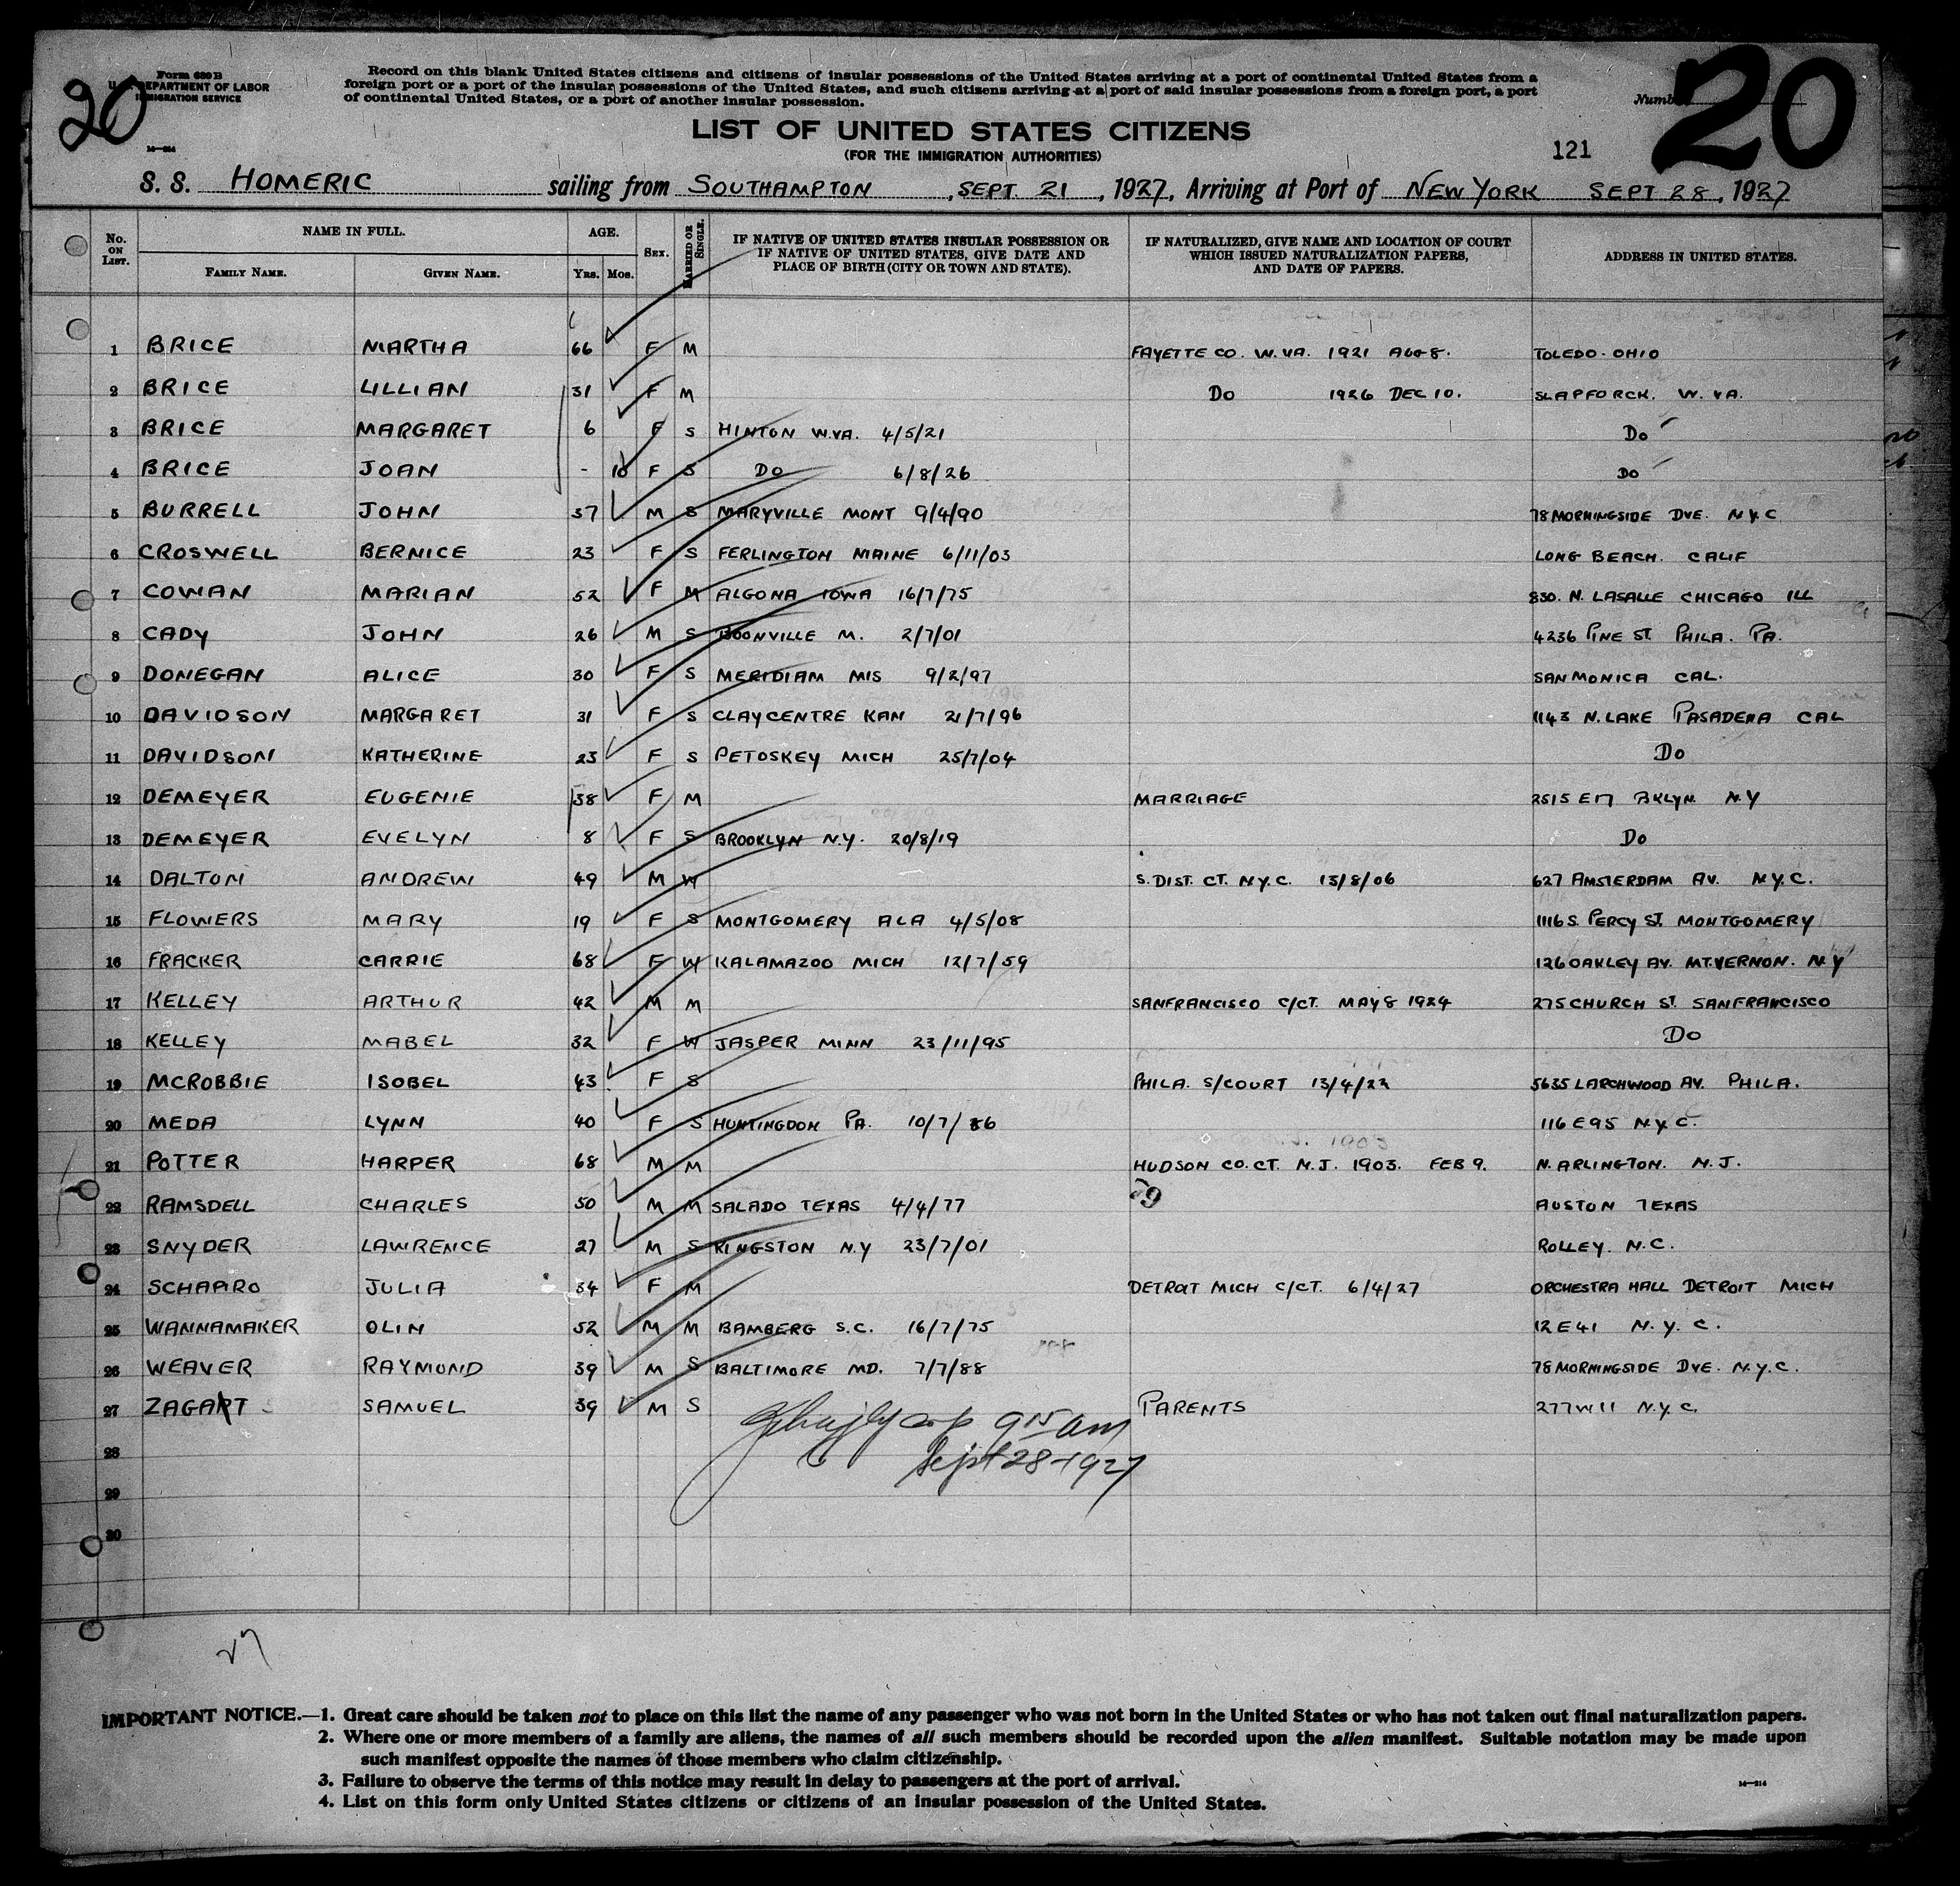 20
Form 630 B
U. S. DEPARTMENT OF LABOR
IMMIGRATION SERVICE
14—214
Record on this blank United States citizens and citizens of insular possessions of the United States arriving at a port of continental United States from a
foreign port or a port of the insular possessions of the United States, and such citizens arriving at a port of said insular possessions from a foreign port, a port
of continental United States, or a port of another insular possession.
Number 20
LIST OF UNITED STATES CITIZENS
(FOR THE IMMIGRATION AUTHORITIES)
121
S. S. HOMERIC sailing from SOUTHAMPTON, SEPT. 21, 1927, Arriving at Port of NEW YORK SEPT 28, 1927
No. ON LIST. NAME IN FULL. FAMILY NAME. GIVEN NAME. AGE. YRS. MOS. SEX. MARRIED OR SINGLE. IF NATIVE OF UNITED STATES INSULAR POSSESSION OR IF NATIVE OF UNITED STATES, GIVE DATE AND PLACE OF BIRTH (CITY OR TOWN AND STATE). IF NATURALIZED, GIVE NAME AND LOCATION OF COURT WHICH ISSUED NATURALIZATION PAPERS, AND DATE OF PAPERS. ADDRESS IN UNITED STATES.
1 BRICE MARTHA 66 F M FAYETTE CO. W. VA. 1921 AUG 8. TOLEDO. OHIO
2 BRICE LILLIAN 31 F M DO 1926 DEC 10. SLAPFORCK. W. VA.
3 BRICE MARGARET 6 F S HINTON W.VA. 4/5/21 DO
4 BRICE JOAN - 10 F S DO 6/8/26 DO
5 BURRELL JOHN 37 M S MARYVILLE MONT 9/4/90 78 MORNINGSIDE DVE. N.Y.C
6 CROSWELL BERNICE 23 F S FERLINGTON MAINE 6/11/03 LONG BEACH. CALIF
7 COWAN MARIAN 52 F M ALGONA IOWA 16/7/75 830. N. LASALLE CHICAGO ILL
8 CADY JOHN 26 M S BOONVILLE M. 2/7/01 4236 PINE ST. PHILA. PA.
9 DONEGAN ALICE 30 F S MERIDIAM MIS 9/2/97 SAN MONICA CAL.
10 DAVIDSON MARGARET 31 F S CLAYCENTRE KAN 21/7/96 1143 N. LAKE PASADENA CAL
11 DAVIDSON KATHERINE 23 F S PETOSKEY MICH 25/7/04 DO
12 DEMEYER EUGENIE 38 F M MARRIAGE 2515 E 17 BKLYN. N.Y
13 DEMEYER EVELYN 8 F S BROOKLYN N.Y. 20/8/19 DO
14 DALTON ANDREW 49 M W S. DIST. CT. N.Y.C. 13/8/06 627 AMSTERDAM AV. N.Y.C.
15 FLOWERS MARY 19 F S MONTGOMERY ALA 4/5/08 1116 S. PERCY ST. MONTGOMERY
16 FRACKER CARRIE 68 F W KALAMAZOO MICH 12/7/59 126 OAKLEY AV. MT. VERNON. N.Y
17 KELLEY ARTHUR 42 M M SANFRANCISCO C/CT. MAY 8 1924 275 CHURCH ST. SANFRANCISCO
18 KELLEY MABEL 32 F W JASPER MINN 23/11/95 DO
19 MCROBBIE ISOBEL 43 F S PHILA. S/COURT 13/4/22 5635 LARCHWOOD AV. PHILA.
20 MEDA LYNN 40 F S HUNTINGDON PA. 10/7/86 116 E 95 N.Y.C.
21 POTTER HARPER 68 M M HUDSON CO. CT. N.J. 1903. FEB 9. N. ARLINGTON. N.J.
22 RAMSDELL CHARLES 50 M M SALADO TEXAS 4/4/77 AUSTON TEXAS
23 SNYDER LAWRENCE 27 M S KINGSTON N.Y 23/7/01 ROLLEY. N.C.
24 SCHAPIRO JULIA 34 F M DETROIT MICH C/CT. 6/4/27 ORCHESTRA HALL DETROIT MICH
25 WANNAMAKER OLIN 52 M M BAMBERG S.C. 16/7/75 12 E 41 N.Y.C.
26 WEAVER RAYMOND 39 M S BALTIMORE MD. 7/7/88 78 MORNINGSIDE DVE. N.Y.C.
27 ZAGART SAMUEL 39 M S PARENTS 277 W 11 N.Y.C.
9 15 am
28
Sept 28-1927
29
30
27
IMPORTANT NOTICE.—1. Great care should be taken not to place on this list the name of any passenger who was not born in the United States or who has not taken out final naturalization papers.
2. Where one or more members of a family are aliens, the names of all such members should be recorded upon the alien manifest. Suitable notation may be made upon
such manifest opposite the names of those members who claim citizenship.
3. Failure to observe the terms of this notice may result in delay to passengers at the port of arrival.
14—214
4. List on this form only United States citizens or citizens of an insular possession of the United States.